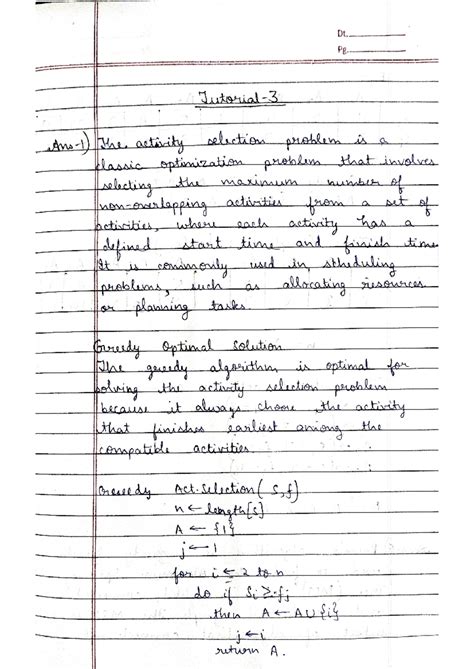 Dt.
Pg.
Tutorial-3
Ans-1) The activity selection problem is a
classic optimization problem that involves
selecting the maximum number of
non-overlapping activities from a set of
activities, where each activity has a
defined start time and finish time
It is commonly used in scheduling
problems, such as allocating resources
or planning tasks.
Greedy Optimal Solution
The greedy algorithm is optimal for
solving the activity selection problem
because it always choose the activity
that finishes earliest among the
compatible activities.
Greedy Act. Selection( S, f)
n ← length[S]
A ← {1}
j ← 1
for i ← 2 to n
do if Si ≥ fj
then A ← A ∪ {i}
j ← i
return A.